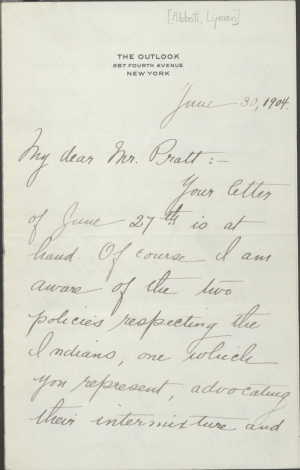 [Abbott, Lyman]
THE OUTLOOK
287 FOURTH AVENUE
NEW YORK
June 30, 1904.
My dear Mr. Pratt:-
Your letter
of June 27th is at
hand. Of course I am
aware of the two
policies respecting the
Indians, one which
you represent, advocating
their intermixture and